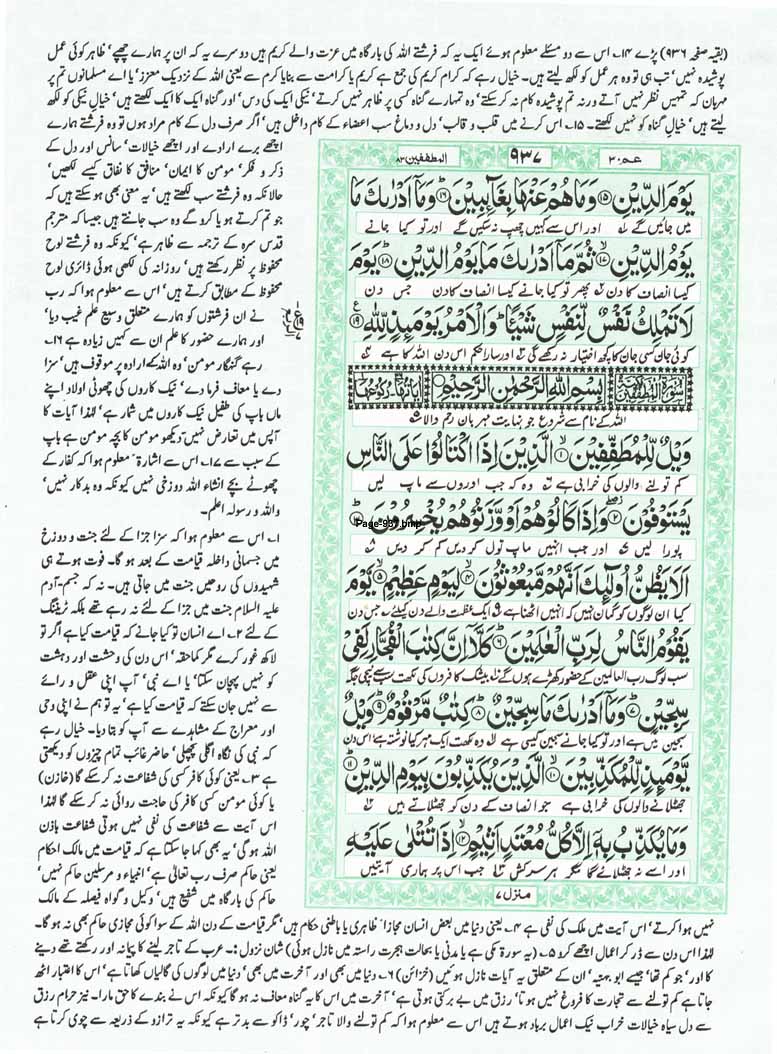 (بقیہ صفحہ ۹۳۶) پڑے ۱۴۔ اس سے دو مسئلے معلوم ہوئے ایک یہ کہ فرشتے اللہ کی بارگاہ میں عزت والے کریم ہیں دوسرے یہ کہ ان پر ہمارے چھپے‘ ظاہر کوئی عمل
پوشیدہ نہیں‘ تب ہی تو وہ ہر عمل کو لکھ لیتے ہیں۔ خیال رہے کہ کرام کریم کی جمع ہے کریم یا کرامت سے بنا یا کرم سے یعنی اللہ کے نزدیک معزز‘ یا اے مسلمانوں تم پر
مہربان کہ تمہیں نظر نہیں آتے ورنہ تم پوشیدہ کام نہ کر سکتے‘ وہ تمہارے گناہ کسی پر ظاہر نہیں کرتے‘ نیکی ایک کی دس‘ اور گناہ ایک کا ایک لکھتے ہیں‘ خیال نیکی کو لکھ
لیتے ہیں‘ خیال گناہ کو نہیں لکھتے۔ ۱۵۔ اس کرنے میں قلب و قالب‘ دل و دماغ سب اعضاء کے کام داخل ہیں‘ اگر صرف دل کے کام مراد ہوں تو وہ فرشتے ہمارے
اچھے برے ارادے اور اچھے خیالات‘ سانس اور دل کے
ذکر و فکر‘ مومن کا ایمان‘ منافق کا نفاق کیسے لکھیں‘
حالانکہ وہ فرشتے سب لکھتے ہیں‘ یہ معنی بھی ہو سکتے ہیں کہ
جو تم کرتے ہو یا کرو گے وہ سب جانتے ہیں جیسا کہ مترجم
قدس سرہ کے ترجمہ سے ظاہر ہے‘ کیونکہ وہ فرشتے لوح
محفوظ پر نظر رکھتے ہیں‘ روزانہ کی لکھی ہوئی ڈائری لوح
محفوظ کے مطابق کرتے ہیں‘ اس سے معلوم ہوا کہ رب
نے ان فرشتوں کو ہمارے متعلق وسیع علم غیب دیا‘
اور ہمارے حضور کا علم ان سے کہیں زیادہ ہے ۱۶۔
رہے گنہگار مومن‘ وہ اللہ کے ارادہ پر موقوف ہیں‘ سزا
دے یا معاف فرما دے‘ نیک کاروں کی چھوٹی اولاد اپنے
ماں باپ کی طفیل نیک کاروں میں شمار ہے‘ لہٰذا آیات کا
آپس میں تعارض نہیں‘ دیکھو مومن کا بچہ مومن ہے باپ
کے سبب سے ۱۷۔ اس سے اشارۃ معلوم ہوا کہ کفار کے
چھوٹے بچے انشاء اللہ دوزخی نہیں کیونکہ وہ بدکار نہیں‘
واللہ و رسولہ اعلم۔
۱۔ اس سے معلوم ہوا کہ سزا جزا کے لئے جنت و دوزخ
میں جسمانی داخلہ قیامت کے بعد ہو گا۔ فوت ہوتے ہی
شہیدوں کی روحیں جنت میں جاتی ہیں۔ نہ کہ جسم۔ آدم
علیہ السلام جنت میں جزا کے لئے نہ رہے تھے بلکہ ٹریننگ
کے لئے ۲۔ اے انسان تو کیا جانے کہ قیامت کیا ہے اگر تو
لاکھ غور کرے مگر کماحقہ‘ اس دن کی وحشت اور دہشت
کو نہیں پہچان سکتا‘ یا اے نبی‘ آپ اپنی عقل و رائے
سے نہیں جان سکتے کہ قیامت کیا ہے‘ یہ تو ہم نے اپنی وحی
اور معراج کے مشاہدے سے آپ کو بتا دیا۔ خیال رہے
کہ نبی کی نگاہ اگلی پچھلی‘ حاضر غائب تمام چیزوں کو دیکھتی
ہے ۳۔ یعنی کوئی کافر کسی کی شفاعت نہ کر سکے گا (خازن)
یا کوئی مومن کسی کافر کی حاجت روائی نہ کر سکے گا لہٰذا
اس آیت سے شفاعت کی نفی نہیں ہوتی شفاعت باذن
اللہ ہو گی‘ یہ بھی کہا جا سکتا ہے کہ قیامت میں مالک احکام
یعنی حاکم صرف رب تعالیٰ ہے‘ انبیاء و مرسلین حاکم نہیں‘
حاکم کی بارگاہ میں شفیع ہیں‘ وکیل و گواہ فیصلہ کے مالک
عم ۳۰
۹۳۷
المطففین ۸۳
يَوْمَ الدِّيْنِ ۱۵ وَمَا هُمْ عَنْهَا بِغَآئِبِيْنَ ۱۶ وَمَآ اَدْرٰىكَ مَا
میں جائیں گے اور اس سے کہیں چھپ نہ سکیں گے اور تو کیا جانے
يَوْمُ الدِّيْنِ ۱۷ ثُمَّ مَآ اَدْرٰىكَ مَا يَوْمُ الدِّيْنِ ۱۸ يَوْمَ
کیسا انصاف کا دن پھر تو کیا جانے کیسا انصاف کا دن جس دن
لَا تَمْلِكُ نَفْسٌ لِّنَفْسٍ شَيْئًا وَالْاَمْرُ يَوْمَئِذٍ لِّلّٰهِ ۱۹
کوئی جان کسی جان کا کچھ اختیار نہ رکھے گی اور سارا حکم اس دن اللہ کا ہے
سُوْرَةُ الْمُطَفِّفِيْنَ مَكِّيَّةٌ بِسْمِ اللّٰهِ الرَّحْمٰنِ الرَّحِيْمِ اٰيَاتُهَا ۳۶ رُكُوْعُهَا
اللہ کے نام سے شروع جو نہایت مہربان رحم والا
وَيْلٌ لِّلْمُطَفِّفِيْنَ ۱ الَّذِيْنَ اِذَا اكْتَالُوْا عَلَى النَّاسِ
کم تولنے والوں کی خرابی ہے وہ کہ جب اوروں سے ماپ لیں
يَسْتَوْفُوْنَ ۲ وَاِذَا كَالُوْهُمْ اَوْ وَّزَنُوْهُمْ يُخْسِرُوْنَ ۳
Page-937.bmp
پورا لیں اور جب انہیں ماپ تول کر دیں کم کر دیں
اَلَا يَظُنُّ اُولٰٓئِكَ اَنَّهُمْ مَّبْعُوْثُوْنَ ۴ لِيَوْمٍ عَظِيْمٍ ۵ يَّوْمَ
کیا ان لوگوں کو گمان نہیں کہ انہیں اٹھنا ہے ایک عظمت والے دن کیلئے جس دن
يَقُوْمُ النَّاسُ لِرَبِّ الْعٰلَمِيْنَ ۶ كَلَّآ اِنَّ كِتٰبَ الْفُجَّارِ لَفِيْ
سب لوگ رب العالمین کے حضور کھڑے ہوں گے بیشک کافروں کی لکھت سب سے نیچی جگہ
سِجِّيْنٍ ۷ وَمَآ اَدْرٰىكَ مَا سِجِّيْنٌ ۸ كِتٰبٌ مَّرْقُوْمٌ ۹ وَيْلٌ
سجین میں ہے اور تو کیا جانے سجین کیسی ہے وہ لکھت ایک مہر کیا نوشتہ ہے اس دن
يَّوْمَئِذٍ لِّلْمُكَذِّبِيْنَ ۱۰ الَّذِيْنَ يُكَذِّبُوْنَ بِيَوْمِ الدِّيْنِ ۱۱
جھٹلانے والوں کی خرابی ہے جو انصاف کے دن کو جھٹلاتے ہیں
وَمَا يُكَذِّبُ بِهٖٓ اِلَّا كُلُّ مُعْتَدٍ اَثِيْمٍ ۱۲ اِذَا تُتْلٰى عَلَيْهِ
اور اسے نہ جھٹلائے گا مگر ہر سرکش جب اس پر ہماری آیتیں
منزل ۷
نہیں ہوا کرتے‘ اس آیت میں ملک کی نفی ہے ۴۔ یعنی دنیا میں بعض انسان مجازاً ظاہری یا باطنی حکام ہیں‘ مگر قیامت کے دن اللہ کے سوا کوئی مجازی حاکم بھی نہ ہو گا۔
لہٰذا اس دن سے ڈر کر اعمال اچھے کرو ۵۔ (یہ سورۃ مکی ہے یا مدنی یا بحالت ہجرت راستہ میں نازل ہوئی) شان نزول :۔ عرب کے تاجر لینے کا پیمانہ اور رکھتے تھے دینے
کا اور‘ جو کم تھا‘ جیسے ابو جہینہ‘ ان کے متعلق یہ آیات نازل ہوئیں (خزائن) ۶۔ دنیا میں بھی اور آخرت میں بھی‘ دنیا میں لوگوں کی گالیاں کھاتا ہے‘ اس کا اعتبار اٹھ
جاتا ہے کم تولنے سے تجارت کا فروغ نہیں ہوتا‘ رزق میں بے برکتی ہوتی ہے‘ آخرت میں اس کا یہ گناہ معاف نہ ہو گا کیونکہ اس نے بندے کا حق مارا۔ نیز حرام رزق
سے دل سیاہ خیالات خراب نیک اعمال برباد ہوتے ہیں اس سے معلوم ہوا کہ کم تولنے والا تاجر‘ چور‘ ڈاکو سے بدتر ہے کیونکہ یہ ترازو کے ذریعہ سے چوری کرتا ہے